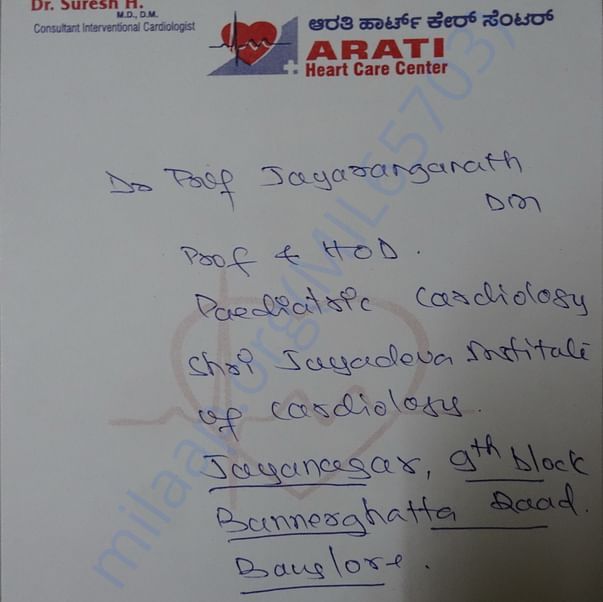 Dr. Suresh H.
M.D., D.M.
Consultant Interventional Cardiologist
ಆರತಿ ಹಾರ್ಟ್ ಕೇರ್ ಸೆಂಟರ್
ARATI
Heart Care Center
Dr Prof Jayaranganath
DM
Prof & HOD.
Paediatric Cardiology
Shri Jayadeva Institute
of Cardiology.
Jayanagar, 9th block
Bannerghatta Road.
Banglore.
milaap.org/MIL657037